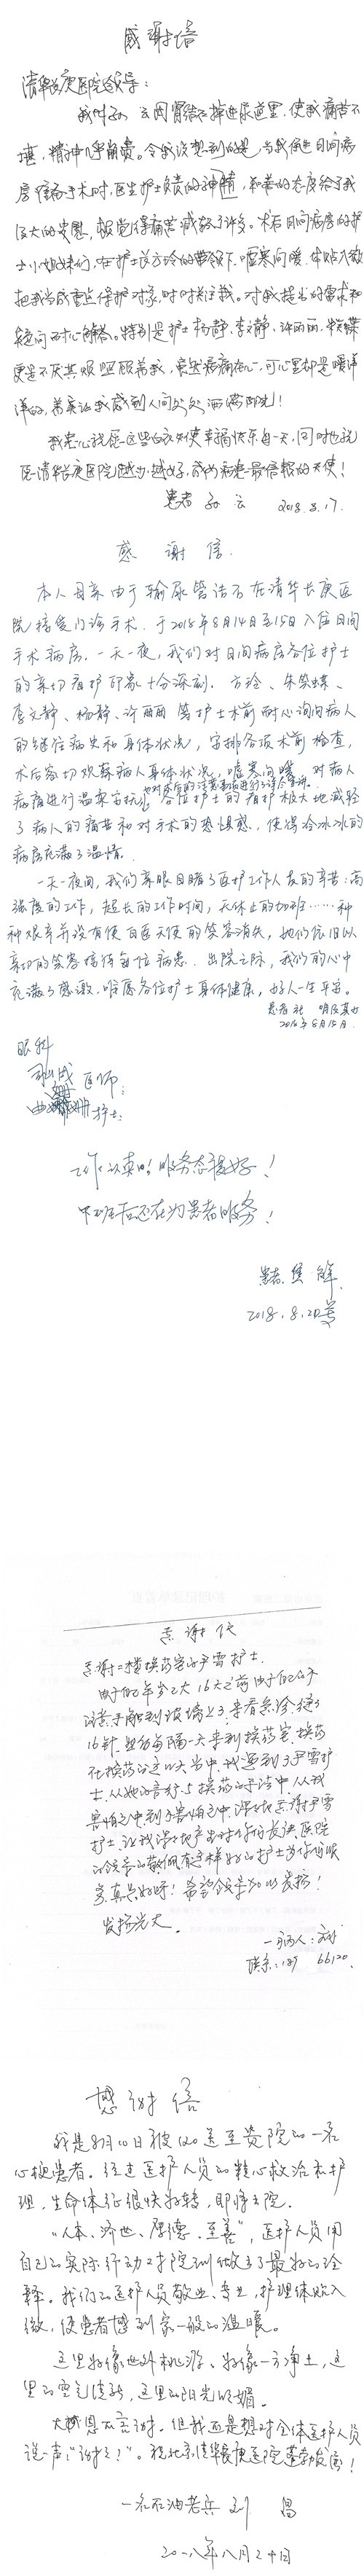 感谢信
清华长庚医院领导：
我叫孙 云因肾结石掉进尿道里，使我痛苦不
堪，精神几乎崩溃。令我没想到的是，当我住进日间病
房准备手术时，医生护士负责的神情，和善的态度给了我
极大的安慰，顿觉得痛苦减轻了许多。术后日间病房的护
士小姐妹们，在护士长方玲的带领下，嘘寒问暖，体贴入微
把我当成重点保护对象，时时关注我。对我提出的需求和
疑问耐心解答。特别是护士杨静、李文静、许丽丽、朱笑蝶
更是不厌其烦照顾着我，虽然疼痛在心，可心里却是暖洋
洋的，着实让我感到人间处处洒满阳光！
我衷心祝愿这些白衣天使幸福快乐每一天，同时也祝
愿清华长庚医院越办越好，成为病患最信赖的天使！
患者 孙 云 2018.8.17.
感 谢 信.
本人母亲由于输尿管结石在清华长庚医
院接受门诊手术，于2018年8月14日至15日入住日间
手术病房。一天一夜，我们对日间病房各位护士
的亲切看护印象十分深刻。方玲、朱笑蝶、
李文静、杨静、许丽丽等护士术前耐心询问病人
的既往病史和身体状况，安排各项术前检查，
术后密切观察病人身体状况，嘘寒问暖，对病人
病痛进行温柔安抚，也对术后的注意事项进行了详尽告知。各位护士的看护极大地减轻
了病人的痛苦和对手术的恐惧感，使得冷冰冰的
病房充满了温情。
一天一夜间，我们亲眼目睹了医护工作人员的辛苦：高
强度的工作，超长的工作时间，无休止的加班……种
种艰辛并没有使白医天使的笑容消失，她们依旧以
亲切的笑容接待每位病患。出院之际，我们的心中
充满了感激，唯愿各位护士身体健康，好人一生平安。
患者 杜 明及其女
2018年8月15日.
眼科
医师：
护士：
工作认真！服务态度好！
中班后还在为患者服务！
患者
2018.8.20号
感谢信
感谢二楼换药室的尹雪护士.
由于自己年岁已大 16天之前由于自己不
16针.
每隔一天来到换药室.换药
在换药的这 天当中.我遇到了尹雪护
士.从她的言行.与换药的手法中.从我
害怕之中到不害怕之中.深深地感谢尹雪
护士.
发扬光大。
一病人：刘
联系：189 66120.
感谢信
我是8月10日被120送至贵院的一名
心梗患者。经过医护人员的精心救治和护
理，生命体征很快好转，即将出院。
“人本、济世、厚德、至善”，医护人员用
自己的实际行动对院训做出了最好的诠
释。我们的医护人员敬业、专业，护理体贴入
微，使患者感到家一般的温暖。
这里好像世外桃源、好像一方净土，这
里的空气清新，这里的阳光明媚。
大恩不言谢。但我还是想对全体医护人员
说一声：“谢谢！”。祝北京清华长庚医院蓬勃发展！
一名石油老兵 刘 昌
二〇一八年八月二十日